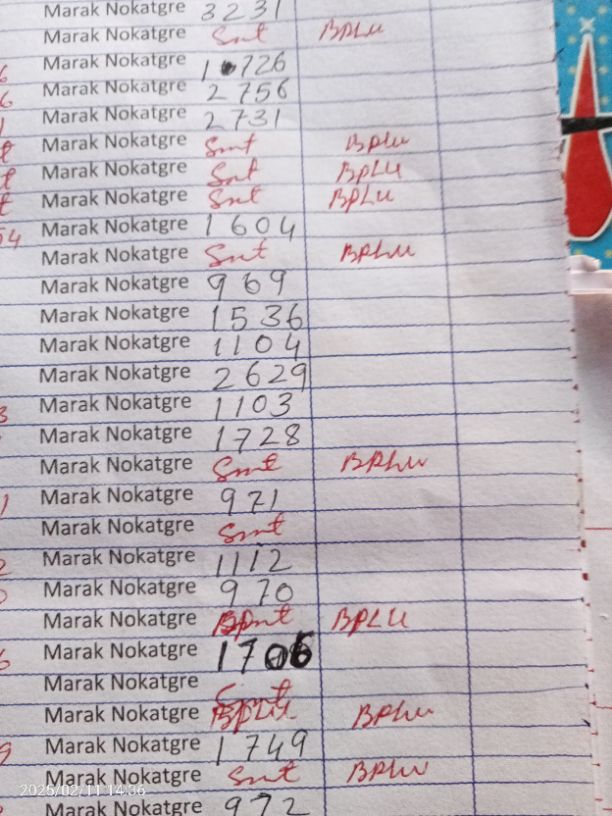 Marak Nokatgre 3231
Marak Nokatgre Smt BPLU
Marak Nokatgre 1 726
Marak Nokatgre 2756
Marak Nokatgre 2731
Marak Nokatgre Smt BPLU
Marak Nokatgre Smt BPLU
Marak Nokatgre Smt BPLU
54 Marak Nokatgre 1604
Marak Nokatgre Smt BPLU
Marak Nokatgre 969
Marak Nokatgre 1536
Marak Nokatgre 1104
Marak Nokatgre 2629
3 Marak Nokatgre 1103
Marak Nokatgre 1728
Marak Nokatgre Smt BPLU
1 Marak Nokatgre 971
Marak Nokatgre Smt
2 Marak Nokatgre 1112
Marak Nokatgre 970
Marak Nokatgre BPLU
6 Marak Nokatgre 1706
Marak Nokatgre Smt
Marak Nokatgre BPLU BPLU
9 Marak Nokatgre 1749
Marak Nokatgre Smt BPLU
Marak Nokatgre 972
2025/02/11 14:36